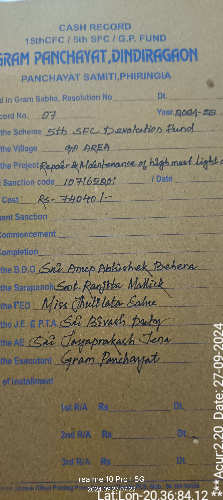 CASH RECORD
15thCFC / 5th SFC / G.P. FUND
GRAM PANCHAYAT, DINDIRAGAON
PANCHAYAT SAMITI, PHIRINGIA
d in Gram Sabha, Resolution No. Dt.
cord No. 07 Year 2024-25
the Scheme 5th SFC Devolution Fund
the Village GP AREA
the Project Repair & Maintenance of high mast light
Sanction code 107165201 / Date
Cost RS- 74040/-
ent Sanction
Commencement
Completion
the B.D.O Sri Anup Abhishek Behera
the Sarapanch Smt. Ranjita Mallick
the PEO Miss Jhullata Sahu
the J.E. / G.P.T.A. Sri Bivash
the AE Sri Jayaprakash Jena
the Executant Gram Panchayat
of Installment
1st R/A Rs. Dt.
2nd R/A Rs. Dt.
3rd R/A Rs. Dt.
realme 10 Pro+ 5G
2024.09.27
Lat,Lon-20.36,84.17
Acur:2.20 Date: 27-09-2024